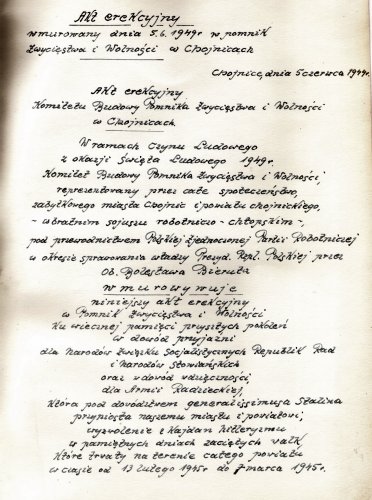 Akt erekcyjny
wmurowany dnia 5.6.1949r w pomnik
Zwycięstwa i Wolności w Chojnicach
Chojnice, dnia 5 czerwca 1949r.
Akt erekcyjny
Komitetu Budowy Pomnika Zwycięstwa i Wolności
w Chojnicach
W ramach Czynu Ludowego
z okazji Święta Ludowego 1949r.
Komitet Budowy Pomnika Zwycięstwa i Wolności,
reprezentowany przez całe społeczeństwo,
zabytkowego miasta Chojnic i powiatu chojnickiego,
- w bratnim sojuszu robotniczo - chłopskim -,
pod przewodnictwem Polskiej Zjednoczonej Partii Robotniczej
w okresie sprawowania władzy Prezyd. Rzpl. Polskiej przez
Ob. Bolesława Bieruta
wmurowywuje
niniejszy akt erekcyjny
w Pomnik Zwycięstwa i Wolności
Ku wiecznej pamięci przyszłych pokoleń
w dowód przyjaźni
dla narodów Związku Socjalistycznych Republik Rad
i narodów Słowiańskich
oraz w dowód wdzięczności,
dla Armii Radzieckiej,
która pod dowództwem generalissimusa Stalina
przyniosła naszemu miastu i powiatowi,
wyzwolenie z kajdan hitleryzmu
w pamiętnych dniach zaciętych walk,
które trwały na terenie całego powiatu
w czasie od 13 lutego 1945r do 7 marca 1945r.